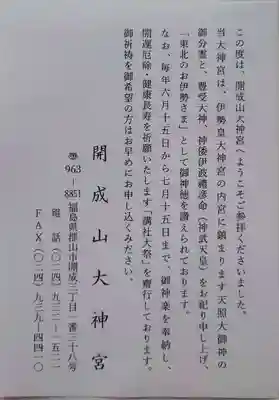 この度は、開成山大神宮へようこそご参拝くださいました。
当大神宮は、伊勢皇大神宮の内宮に鎮まります天照大御神の
御分霊と、豊受大神、神倭伊波禮彦命(神武天皇)をお祀り申し上げ、
「東北のお伊勢さま」として御神徳を讃えられております。
なお、毎年六月十五日から七月十五日まで、御神楽を奉納し、
開運厄除・健康長寿を祈願いたします「講社大祭」を齎行しております。
御祈祷を御希望の方はお早めにお申し込みください。
開成山大神宮
〒963-8851 福島県郡山市開成三丁目一番三十八号
電話(〇二四)九三二—一五二一
FAX(〇二四)九三九—四四一〇